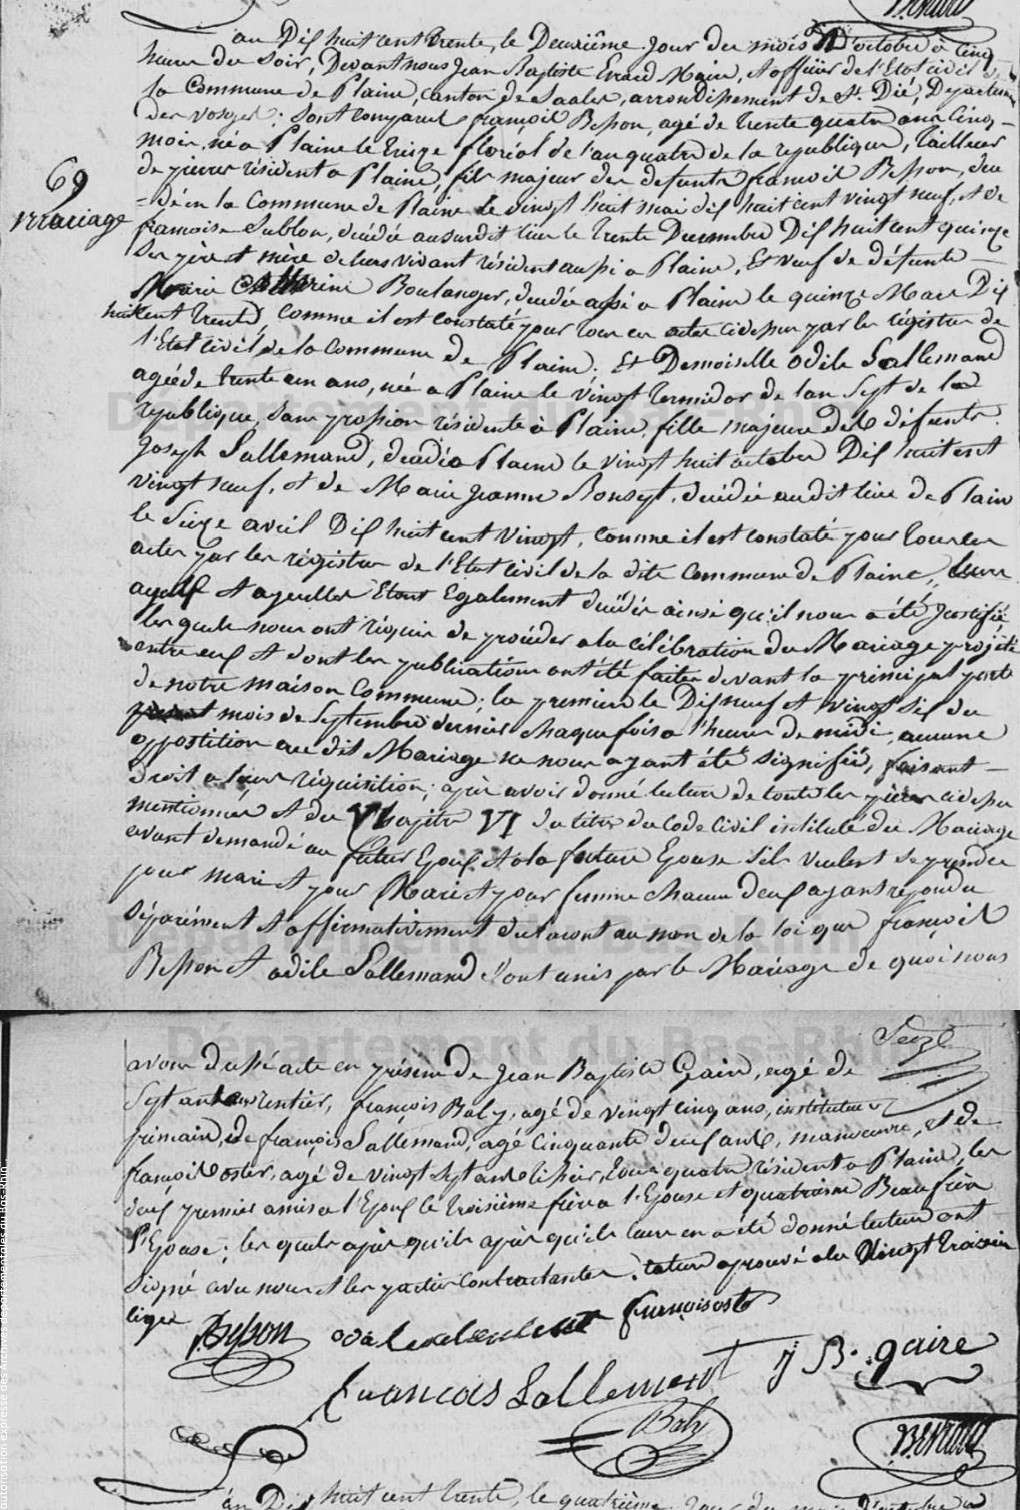 an Dix huit cent trente, le Deuxième jour du mois D'octobre à cinq
heure du soir, Devant nous Jean Baptiste Erard Maire, et officier de l'Etat civil de
la Commune de Plaine, canton de Saales, arrondissement de St Dié, Departement
des vosges; sont comparu françois Besson, agé de trente quatre ans cinq
69
mariage
mois, né à Plaine le treize floréal de l'an quatre de la republique, tailleur
de pierres résident a Plaine, fils majeur des defunts francois Besson, decé-
dé en la Commune de Plaine le vingt huit mai dix huit cent vingt neuf, et de
francoise Sublon, décédée au susdit lieu le trente Decembre Dix huit cent quinze
ses père et mère de leurs vivant résident aussi a Plaine, Et veuf de défunte
Marie Catherine Boulanger, decedée aussi a Plaine le quinze Mars Dix
huit cent trente, comme il est constaté pour tous ces actes cidessus par les régistres de
l'Etat civil de la Commune de Plaine; Et Demoiselle Odile Lallemand
agée de trente un ans, née a Plaine le vingt termidor de l'an Sept de la
republique, sans profession résidente à Plaine, fille majeure des défunts
Joseph Lallemand, decedé a Plaine le vingt huit octobre Dix huit cent
vingt neuf, et de Marie Jeanne décédée audit lieu de Plaine
le Seize avril Dix huit cent vingt, comme il est constaté pour tous ces
actes par les régistres de l'Etat civil de la dite Commune de Plaine, leurs
ayeulx et ayeulles Etant Egalement décédés ainsi qu'il nous a été Justifié,
les quels nous ont réquis de procéder a la célébration du Mariage projété
entre eux et dont les publications ont été faites devant la principal porte
de notre maison Commune; la premiere le Dix neuf et vingt six du
mois de Septembre dernier chaque fois a l'heure de midi, aucune
oppostition au dit Mariage ne nous ayant été signifiée, faisant
droit a leurs réquisition; après avoir donné lecture de toutes les pièces cidessus
mentionnées et du Chapitre VI du titre du Code Civil intitulé du Mariage
avont demandé au futur Epoux et a la future Epouse s'ils veulent se prendre
pour mari et pour Mari et pour femme chacun d'eux ayant repondu
séparément et affirmativement declarons au nom de la loi que françois
Besson et odile Lallemand sont unis par le Mariage de quoi nous
Seize
avons dressé acte en présence de Jean Baptiste Gaire, agé de
Septante ans rentier, françois Baly, agé de vingt cinq ans, instituteur
primaire, de françois Lallemand, agé cinquante deux ans, manœuvre, et de
françois Oster, agé de vingt sept ans tous quatre résident a Plaine, les
deux premiers amis a l'Epoux le troisième frère a l'Epouse et quatrième Beau frère
l'Epouse; les quels après qu'ils après qu'ils leurs en a été donné lecture ont
signé avec nous et les parties contractantes.
ligne Besson odile lalement françois oster
J B. gaire
francois Lallement
Baly
Erard
an Dix huit cent trente, le quatrième jour du mois d'octobre